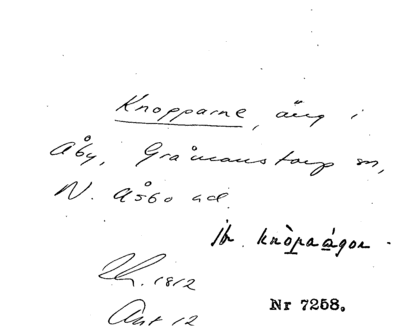 Knopparne, äng i
Åby, Gråmanstorp sn,
N. Åsbo hd.
jb. knòpaágor
Lh. 1812
Akt 12
Nr 7258.